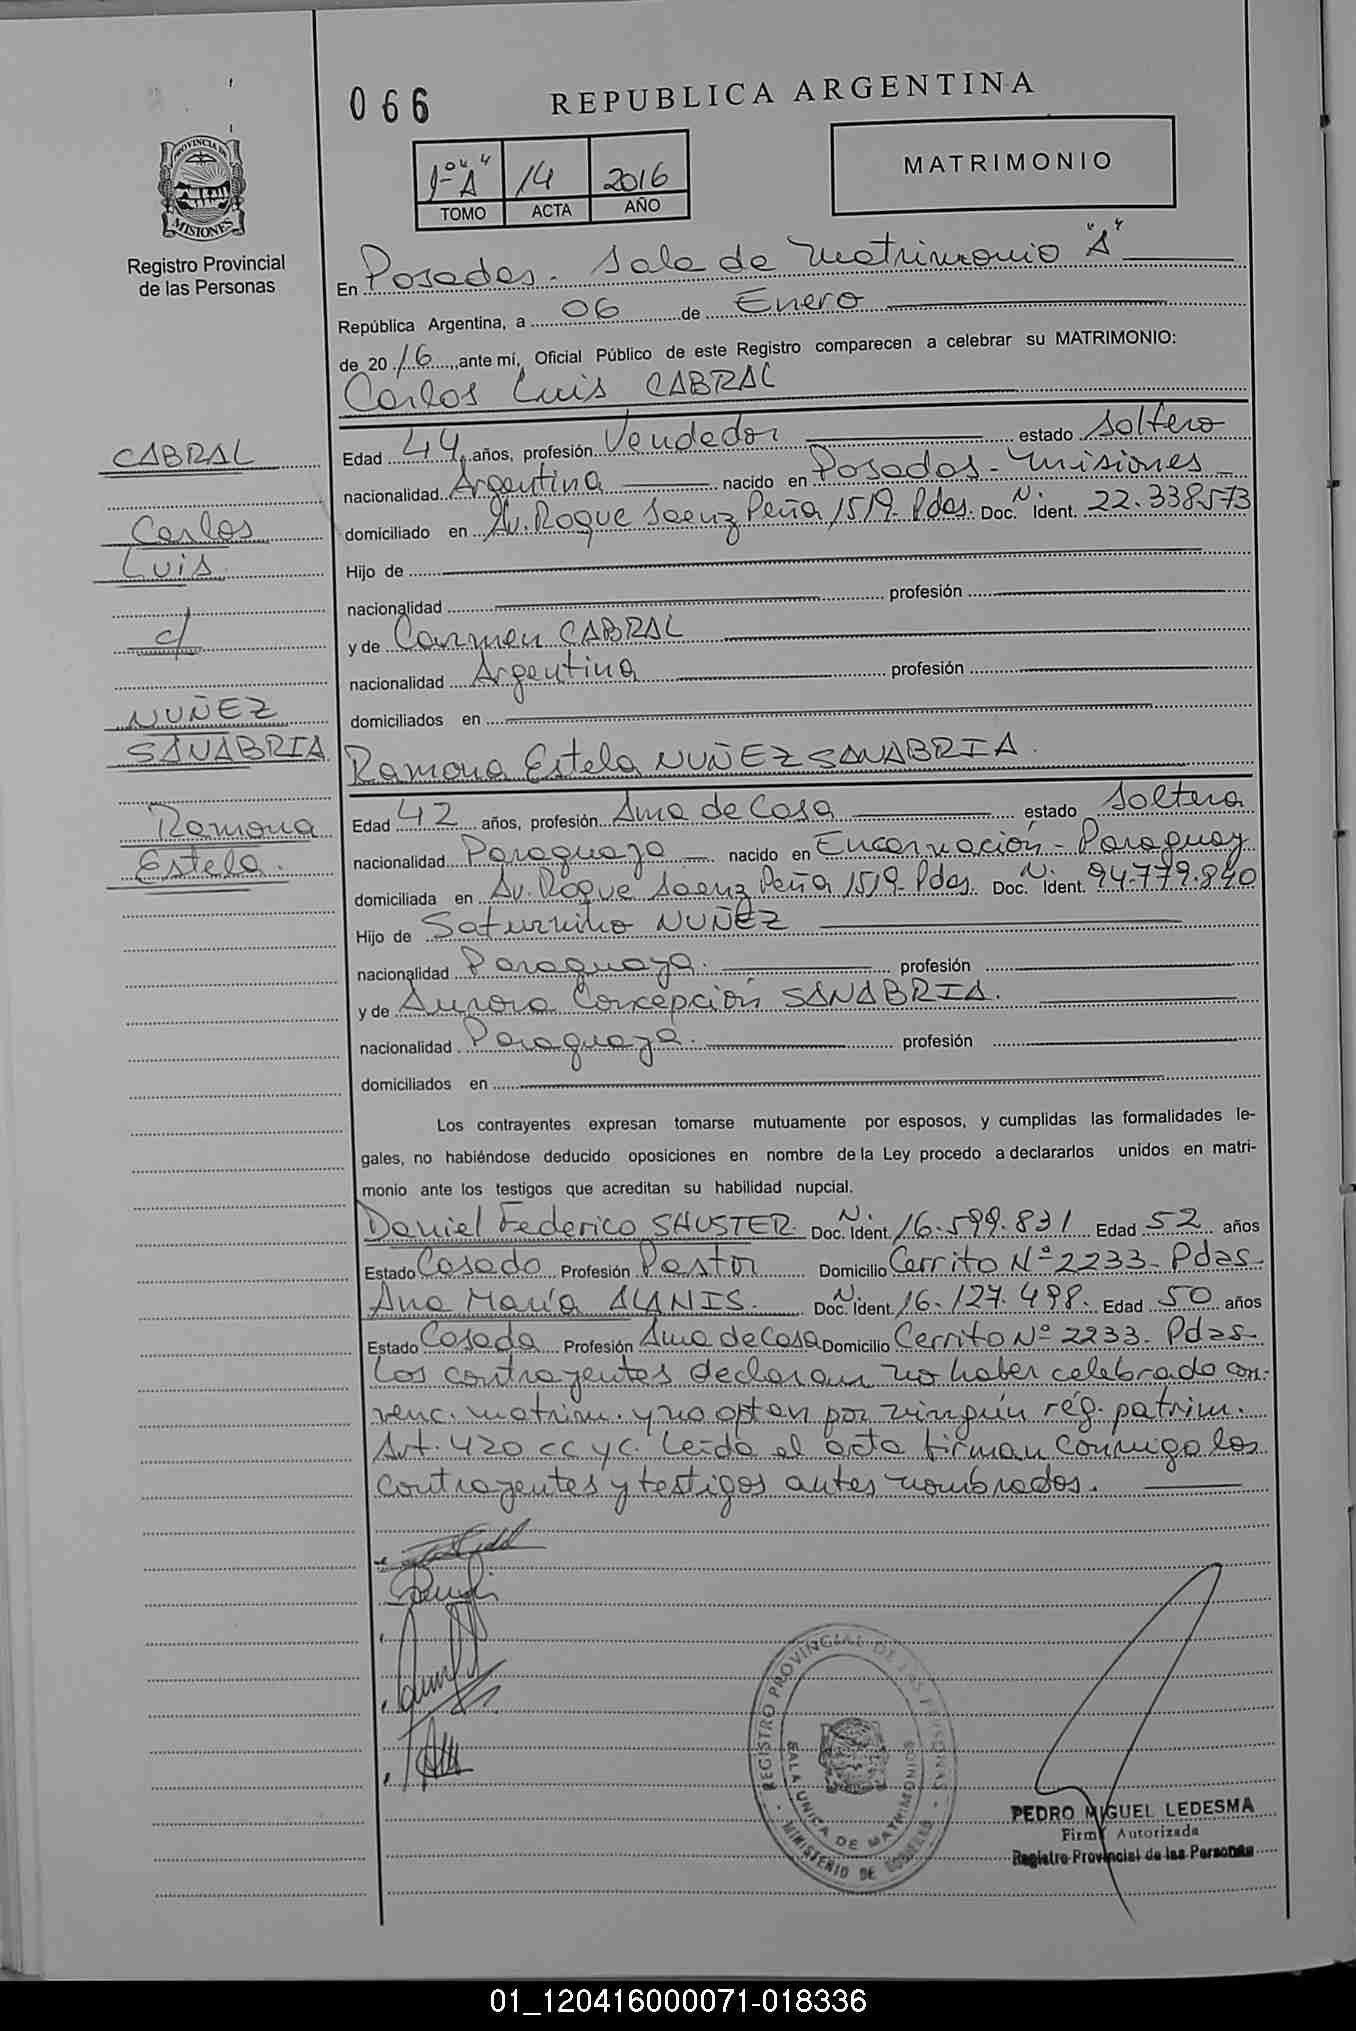 066
REPUBLICA ARGENTINA
PROVINCIA DE
MISIONES
Registro Provincial
de las Personas
1º "A" 14 2016
TOMO ACTA AÑO
MATRIMONIO
En Posadas. Sala de Matrimonio "A"
República Argentina, a 06 de Enero
de 2016, ante mí, Oficial Público de este Registro comparecen a celebrar su MATRIMONIO:
Carlos Luis CABRAL
CABRAL
Carlos
Luis
c/
NUÑEZ
SANABRIA
Ramona
Estela.
Edad 44 años, profesión Vendedor estado Soltero
nacionalidad Argentina nacido en Posadas - Misiones
domiciliado en Av. Roque Saenz Peña 1519- Pdas. Doc. N. Ident. 22.338573
Hijo de
nacionalidad profesión
y de Carmen CABRAL
nacionalidad Argentina profesión
domiciliados en
Ramona Estela NUÑEZ SANABRIA.
Edad 42 años, profesión Ama de Casa estado Soltera
nacionalidad Paraguaya nacido en Encarnación - Paraguay
domiciliada en Av. Roque Saenz Peña 1519- Pdas. Doc. N. Ident. 94.779.840
Hijo de Saturnino NUÑEZ
nacionalidad Paraguaya. profesión
y de Aurora Concepción SANABRIA.
nacionalidad Paraguaya. profesión
domiciliados en
Los contrayentes expresan tomarse mutuamente por esposos, y cumplidas las formalidades le-
gales, no habiéndose deducido oposiciones en nombre de la Ley procedo a declararlos unidos en matri-
monio ante los testigos que acreditan su habilidad nupcial.
Daniel Federico SHUSTER. Doc. N. Ident. 16.599.831 Edad 52 años
Estado Casado Profesión Pastor Domicilio Cerrito Nº 2233- Pdas-
Ana María ALANIS. Doc. N. Ident. 16.127.498. Edad 50 años
Estado Casada Profesión Ama de Casa Domicilio Cerrito Nº 2233. Pdas-
Los contrayentes declaran no haber celebrado con-
venc. matrim. y no optan por ningún rég. patrim.
Art. 420 CC y C. Leída el acta firman conmigo los
contrayentes y testigos antes nombrados.
REGISTRO PROVINCIAL DE LAS PERSONAS
SALA UNICA DE MATRIMONIOS
MINISTERIO DE GOBIERNO
PEDRO MIGUEL LEDESMA
Firma Autorizada
Registro Provincial de las Personas
01_120416000071-018336